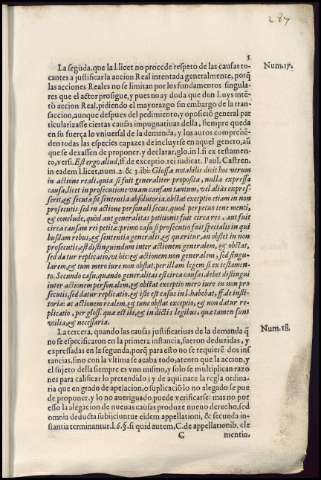 287
5
La següda, que la l. licet no procede respeto de las causas to-
cantes a justificar la accion Real intentada generalmente, porq̃
las acciones Reales no se limitan por los fundamentos singula-
res que el actor prosigue, y pues no ay doda que don Luys intẽ-
tò accion Real, pidiendo el mayorazgo sin embargo de la tran-
saccion, aunque despues del pedimiento, y oposiciõ general par
ticularizasse ciertas causas impugnatiuas della, siempre queda
en su fuerça lo vniuersal de la demanda, y los autos comprehẽ-
den todas las especies capazes de incluyrse en aquel genero, aũ
que se dexassen de proponer, y declarar, glo. in l. si ex testamen-
to, vers. Est ergo aliud, ff. de exceptio. rei iudicat. Paul. Castren.
in eadem l. licet, num. 2. & 3. ibi: Glossa notabilis docit hoc verum
in actione reali, quia si fuit generaliter proposita, nulla expressa
causa, licet in prosecutione vnam causam tantum, vel alias expres-
serit, & secuta sit sententia absolutoria, obstat exceptio etiam in non
prosecutis sed in actione personali secus, quod perpetuo tene menti,
& conclude, quòd aut generalitas petitionis fuit circa res, aut fuit
circa causam rei petitæ: primo casu si prosecutio fuit specialis in qui
busdam rebus, & sententia generalis, & quæritur, an obstet in non
prosecutis, est distinguendum inter actionem generalem, & obstat,
sed datur replicatio, vt hic: & actionem non generalem, sed singu-
larem, & tum mero iure non obstat, per illam legem si ex testamen-
to. Secundo casu, quando generalitas est circa causas debet distingui
inter actionem personalem, & obstat exceptio mero iure in non pro
secutis, sed datur replicatio, & iste est casus in l. habebat, ff. de insti-
toria: at actionem realem, & tunc obstat exceptio, & non datur re-
plicatio, per gloss. quæ est ibi, & in dictis legibus, quæ tantum sunt
vtilia, & necessaria.
Num. 17.
La tercera, quando las causas justificatiuas de la demanda q̃
no se especificaron en la primera instancia, fueron deduzidas, y
expressadas en la segunda, porq̃ para esto no se requierẽ dos ins
tancias, sino con la vltima se acaba todo, atento que la accion, y
el sujeto della siempre es vno mismo, y solo se multiplican razo
nes para calificar lo pretendido: y de aqui nace la regla ordina-
ria que en grado de apelacion, o suplicaciõ lo no alegado se pue
de proponer, y lo no aueriguado puede verificarse: mas no por
esso la alegacion de nueuas causas produze nueuo derecho, sed
omnia deducta subijciuntur eidem appellationi, & secunda in-
stantia terminantur. l. 6. §. si quid autem, C. de appellationib. cle
Num. 18.
C
mentin.